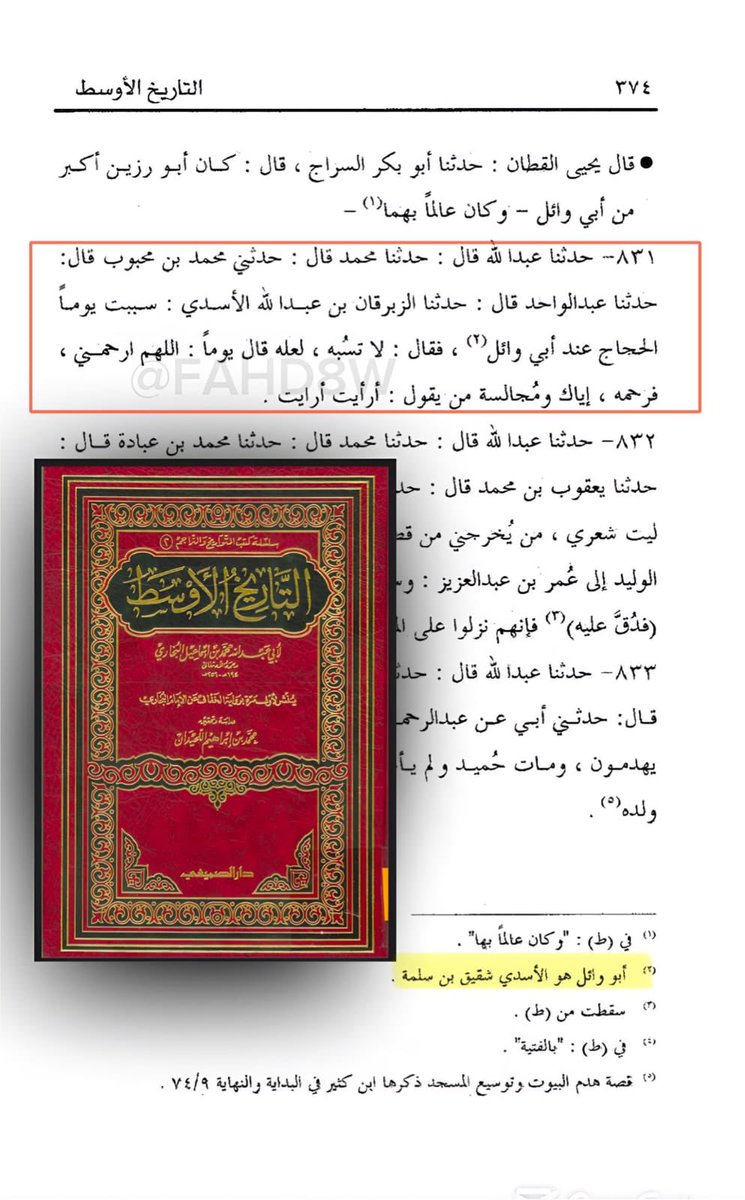 ٣٧٤
التاريخ الأوسط
● قال يحيى القطان : حدثنا أبو بكر السراج ، قال : كـان أبـو رزيـن أكـبر
من أبي وائل – وكان عالماً بهما(١) –
٨٣١– حدثنا عبدا لله قال : حدثنا محمد قال : حدثني محمد بن محبوب قال:
حدثنا عبدالواحد قال : حدثنا الزبرقان بن عبـدا لله الأسـدي : سـببت يومـاً
الحجاج عند أبي وائل(٢) ، فقال : لا تسُبه ، لعله قال يوماً : اللهم ارحمـني ،
فرحمه ، إياك ومُجالسة من يقول : أرأيت أرايت .
@FAHD8W
٨٣٢– حدثنا عبدا لله قال : حدثنا محمد قال : حدثنا محمد بن عبادة قـال :
حدثنا يعقوب بن محمد قال : حد
ليت شعري ، من يُخرجني من قص
الوليد إلى عُمر بن عبدالعزيز : وس
(فدُقَّ عليه)(٣) فإنهم نزلوا على الم
٨٣٣– حدثنا عبدا لله قال : حدثن
قـال: حدثـني أبـي عـن عبدالرحمـ
يهدمـون ، ومـات حُميـد و لم يـأ
ولده(٥) .
سلسلة كتب التواريخ والتراجم (٢)
التاريخ الأوسط
لأبي عبد الله محمد بن إسماعيل البخاري
رحمه الله تعالى
١٩٤هـ - ٢٥٦هـ
يُنشر لأول مرة برواية الخفاف عن الإمام البخاري
دراسة وتحقيق
محمد بن إبراهيم اللحيدان
دار الصميعي
(١) في (ط) : "وكان عالماً بها" .
(٢) أبو وائل هو الأسدي شقيق بن سلمة .
(٣) سقطت من (ط) .
(٤) في (ط) : "بالفتية" .
(٥) قصة هدم البيوت وتوسيع المسجد ذكرها ابن كثير في البداية والنهاية ٧٤/٩ .